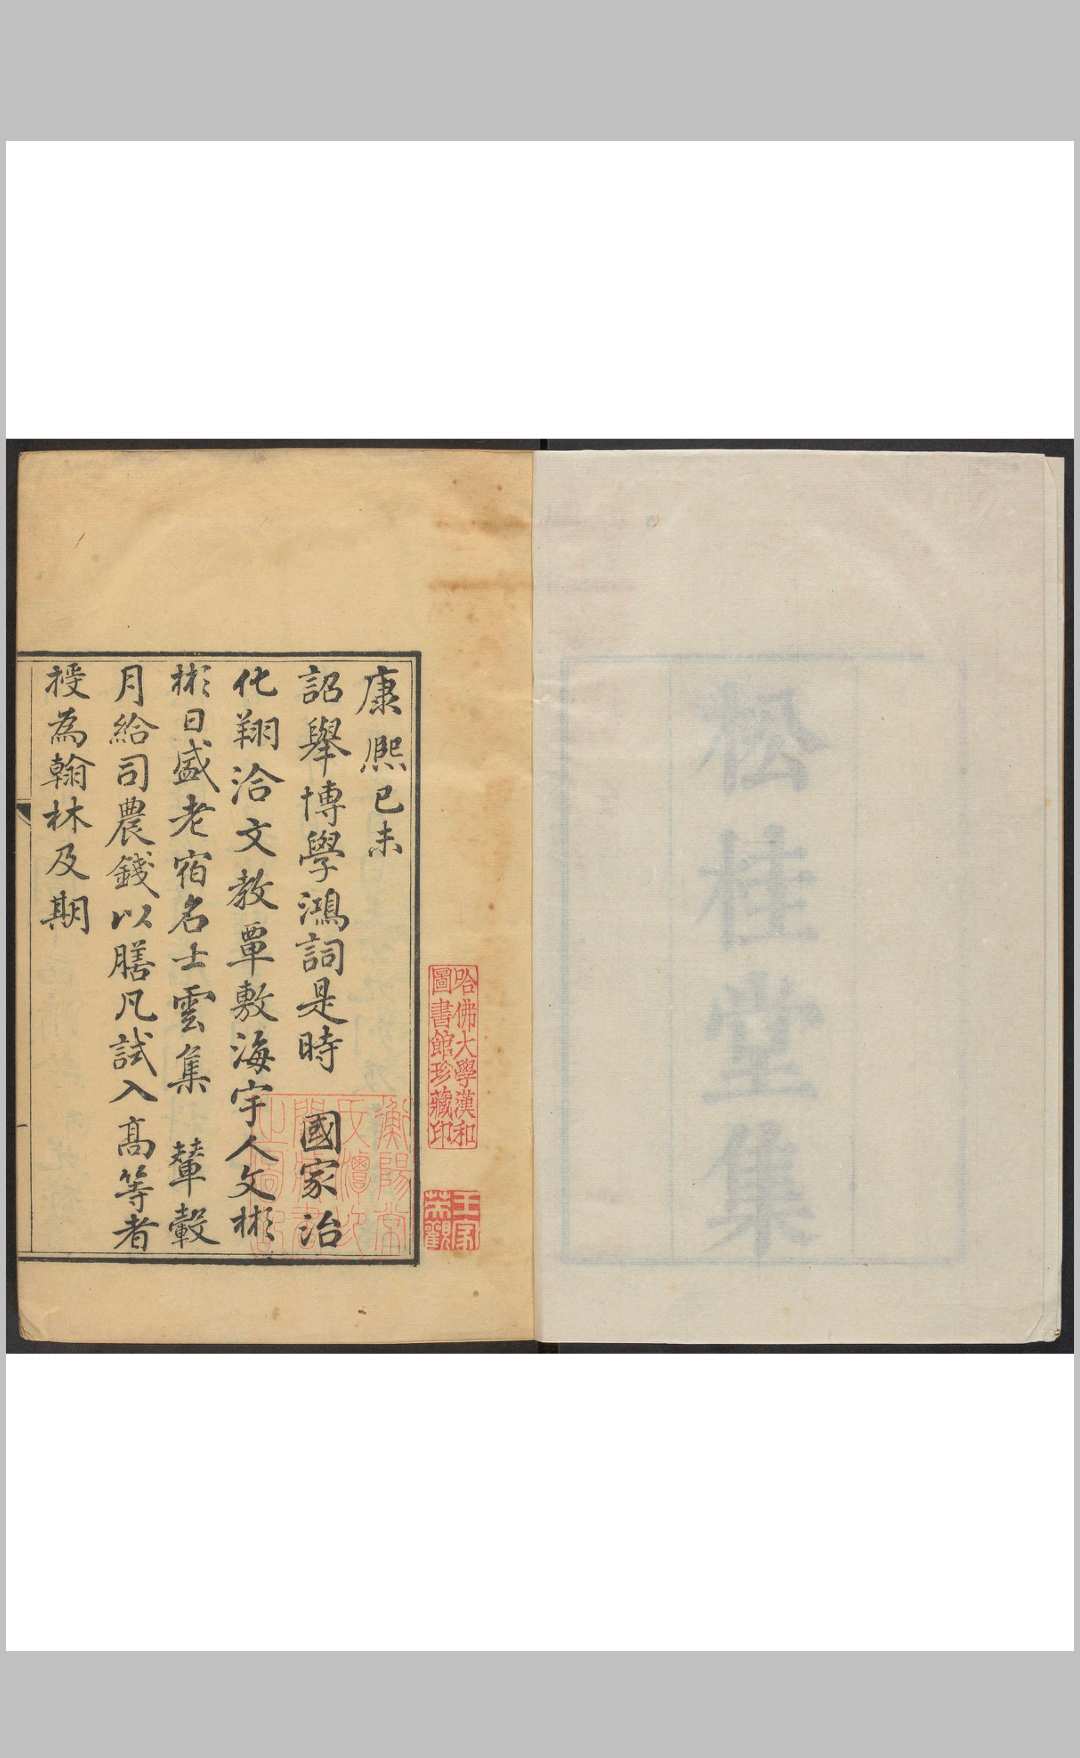 松桂堂集
康熙已未
詔舉博學鴻詞是時 國家治
化翔洽文教覃敷海宇人文彬
彬日盛老宿名士雲集 輦轂
月給司農錢以膳凡試入高等者
授為翰林及期
哈佛大學漢和
圖書館珍藏印